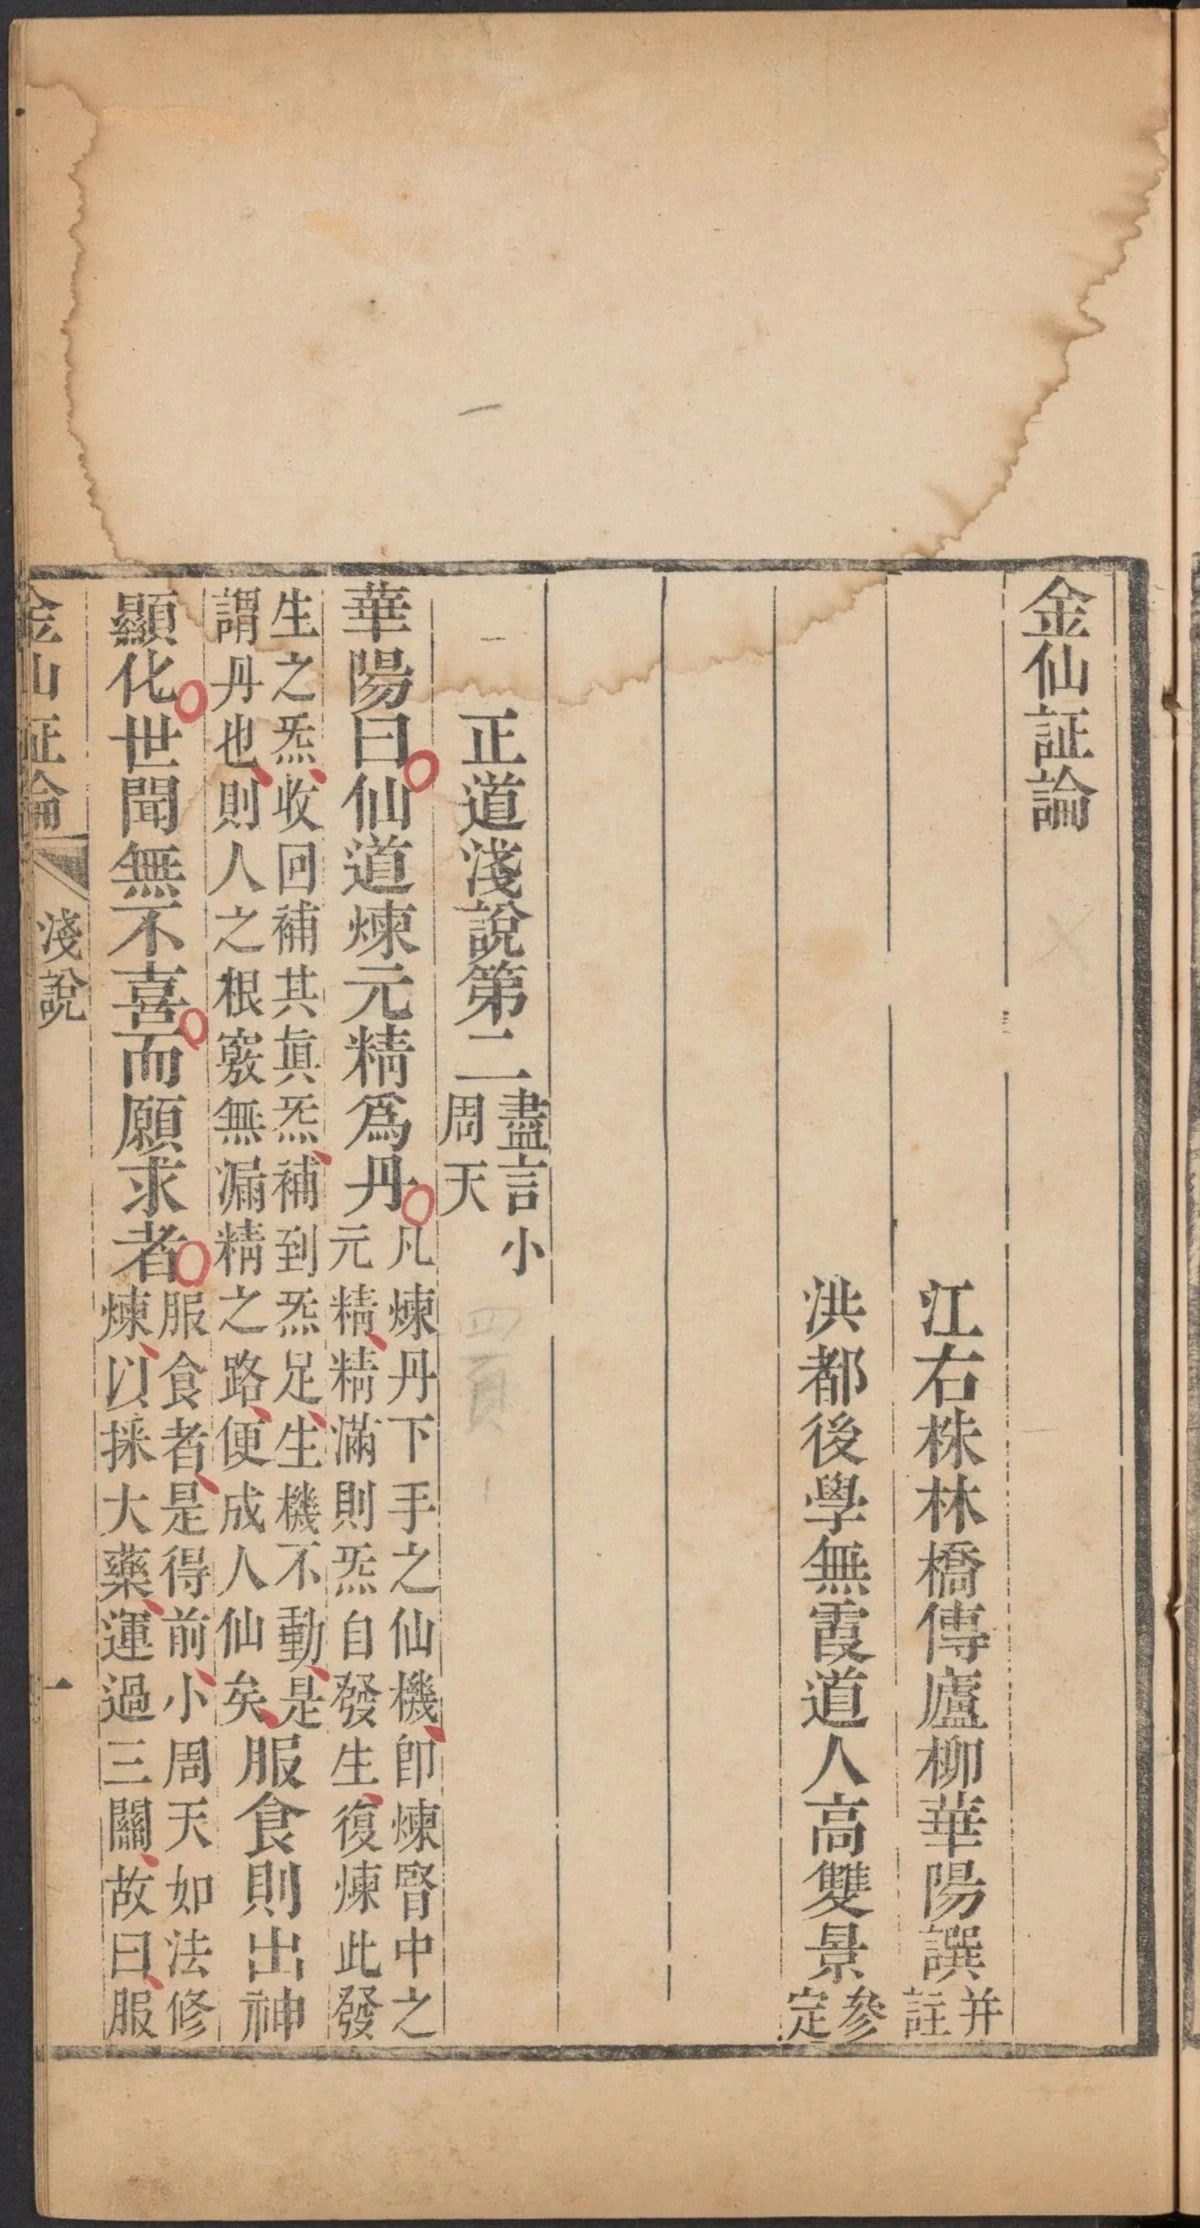 金仙証論
江右株林橋傳廬柳華陽譔并註
洪都後學無霞道人高雙景參定
正道淺說第二盡言小周天
四頁
華陽曰仙道煉元精爲丹凡煉丹下手之仙機卽煉腎中之元精精滿則炁自發生復煉此發
生之炁收回補其眞炁補到炁足生機不動是謂丹也則人之根竅無漏精之路便成人仙矣服食則出神
顯化世聞無不喜而願求者服食者是得前小周天如法修煉以採大藥運過三關故曰服
金仙証論 淺說 一